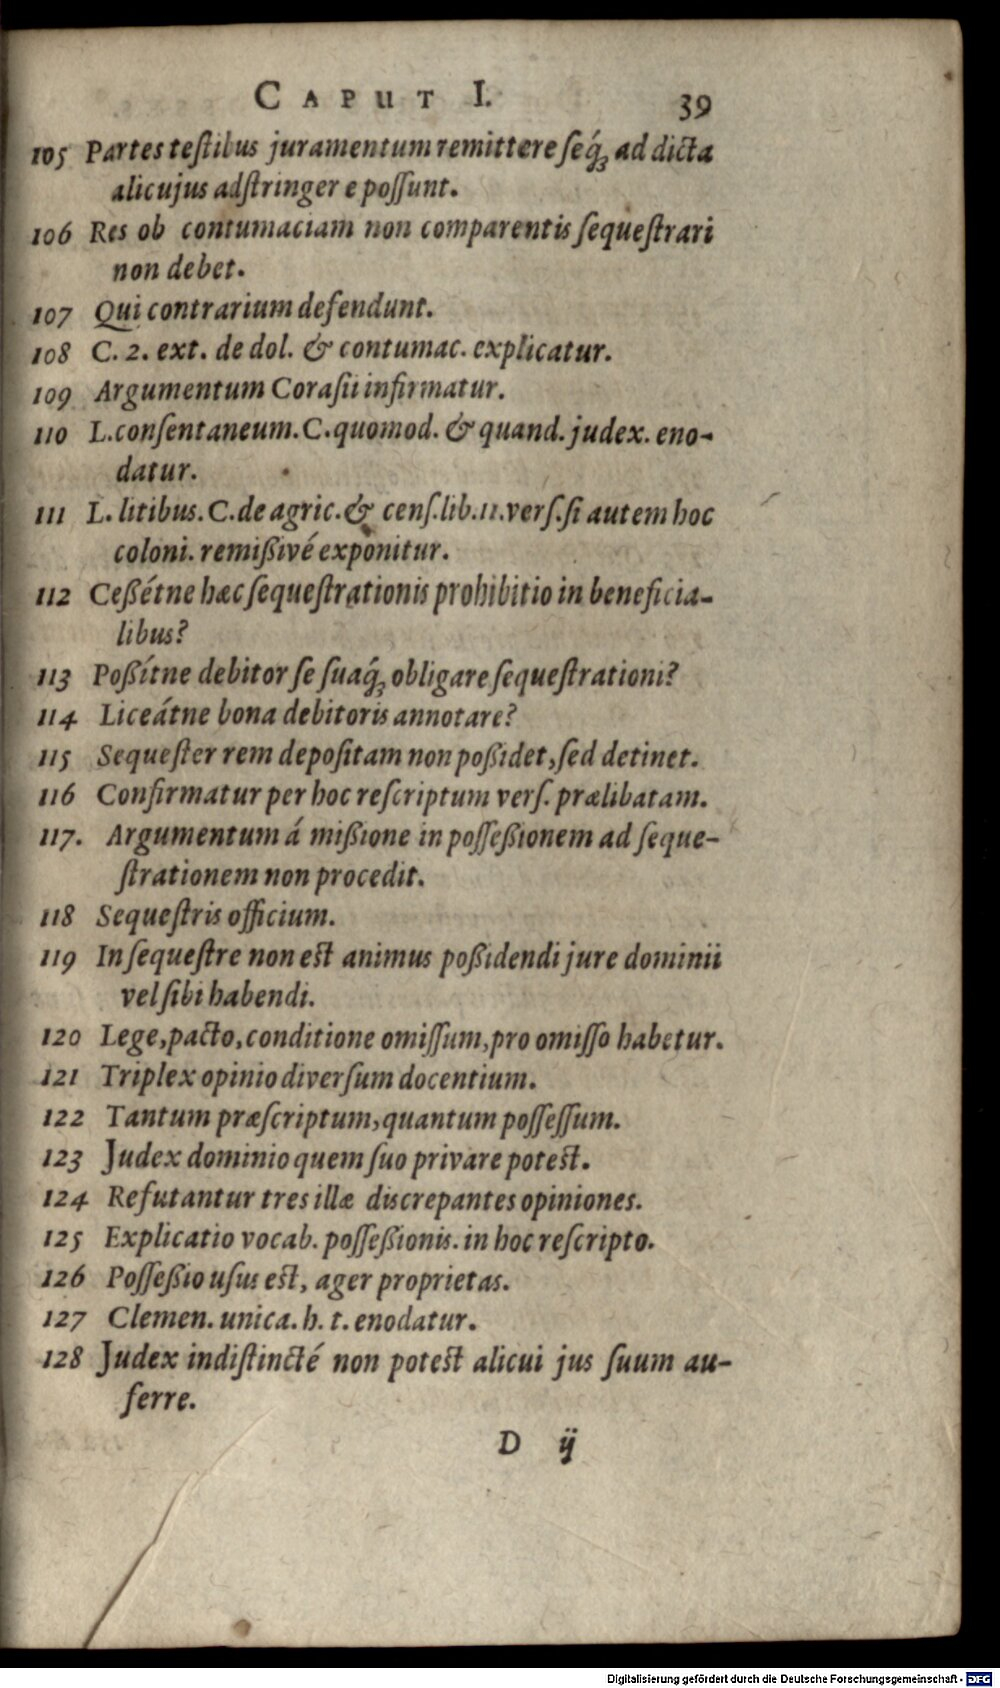 CAPUT I. 39
105 Partes testibus juramentum remittere seq́ꝫ ad dicta
alicujus adstringere possunt.
106 Res ob contumaciam non comparentis sequestrari
non debet.
107 Qui contrarium defendunt.
108 C. 2. ext. de dol. & contumac. explicatur.
109 Argumentum Corasii infirmatur.
110 L. consentaneum. C. quomod. & quand. judex. eno-
datur.
111 L. litibus. C. de agric. & cens. lib. 11. vers. si autem hoc
coloni. remißivé exponitur.
112 Ceßétne hæc sequestrationis prohibitio in beneficia-
libus?
113 Poßítne debitor se suaq́ꝫ obligare sequestrationi?
114 Liceátne bona debitoris annotare?
115 Sequester rem depositam non poßidet, sed detinet.
116 Confirmatur per hoc rescriptum vers. prælibatam.
117. Argumentum á mißione in posseßionem ad seque-
strationem non procedit.
118 Sequestris officium.
119 In sequestre non est animus poßidendi jure dominii
vel sibi habendi.
120 Lege, pacto, conditione omissum, pro omisso habetur.
121 Triplex opinio diversum docentium.
122 Tantum præscriptum, quantum possessum.
123 Judex dominio quem suo privare potest.
124 Refutantur tres illæ discrepantes opiniones.
125 Explicatio vocab. posseßionis. in hoc rescripto.
126 Posseßio usus est, ager proprietas.
127 Clemen. unica. h. t. enodatur.
128 Judex indistincté non potest alicui jus suum au-
ferre.
D ij
Digitalisierung gefördert durch die Deutsche Forschungsgemeinschaft - DFG